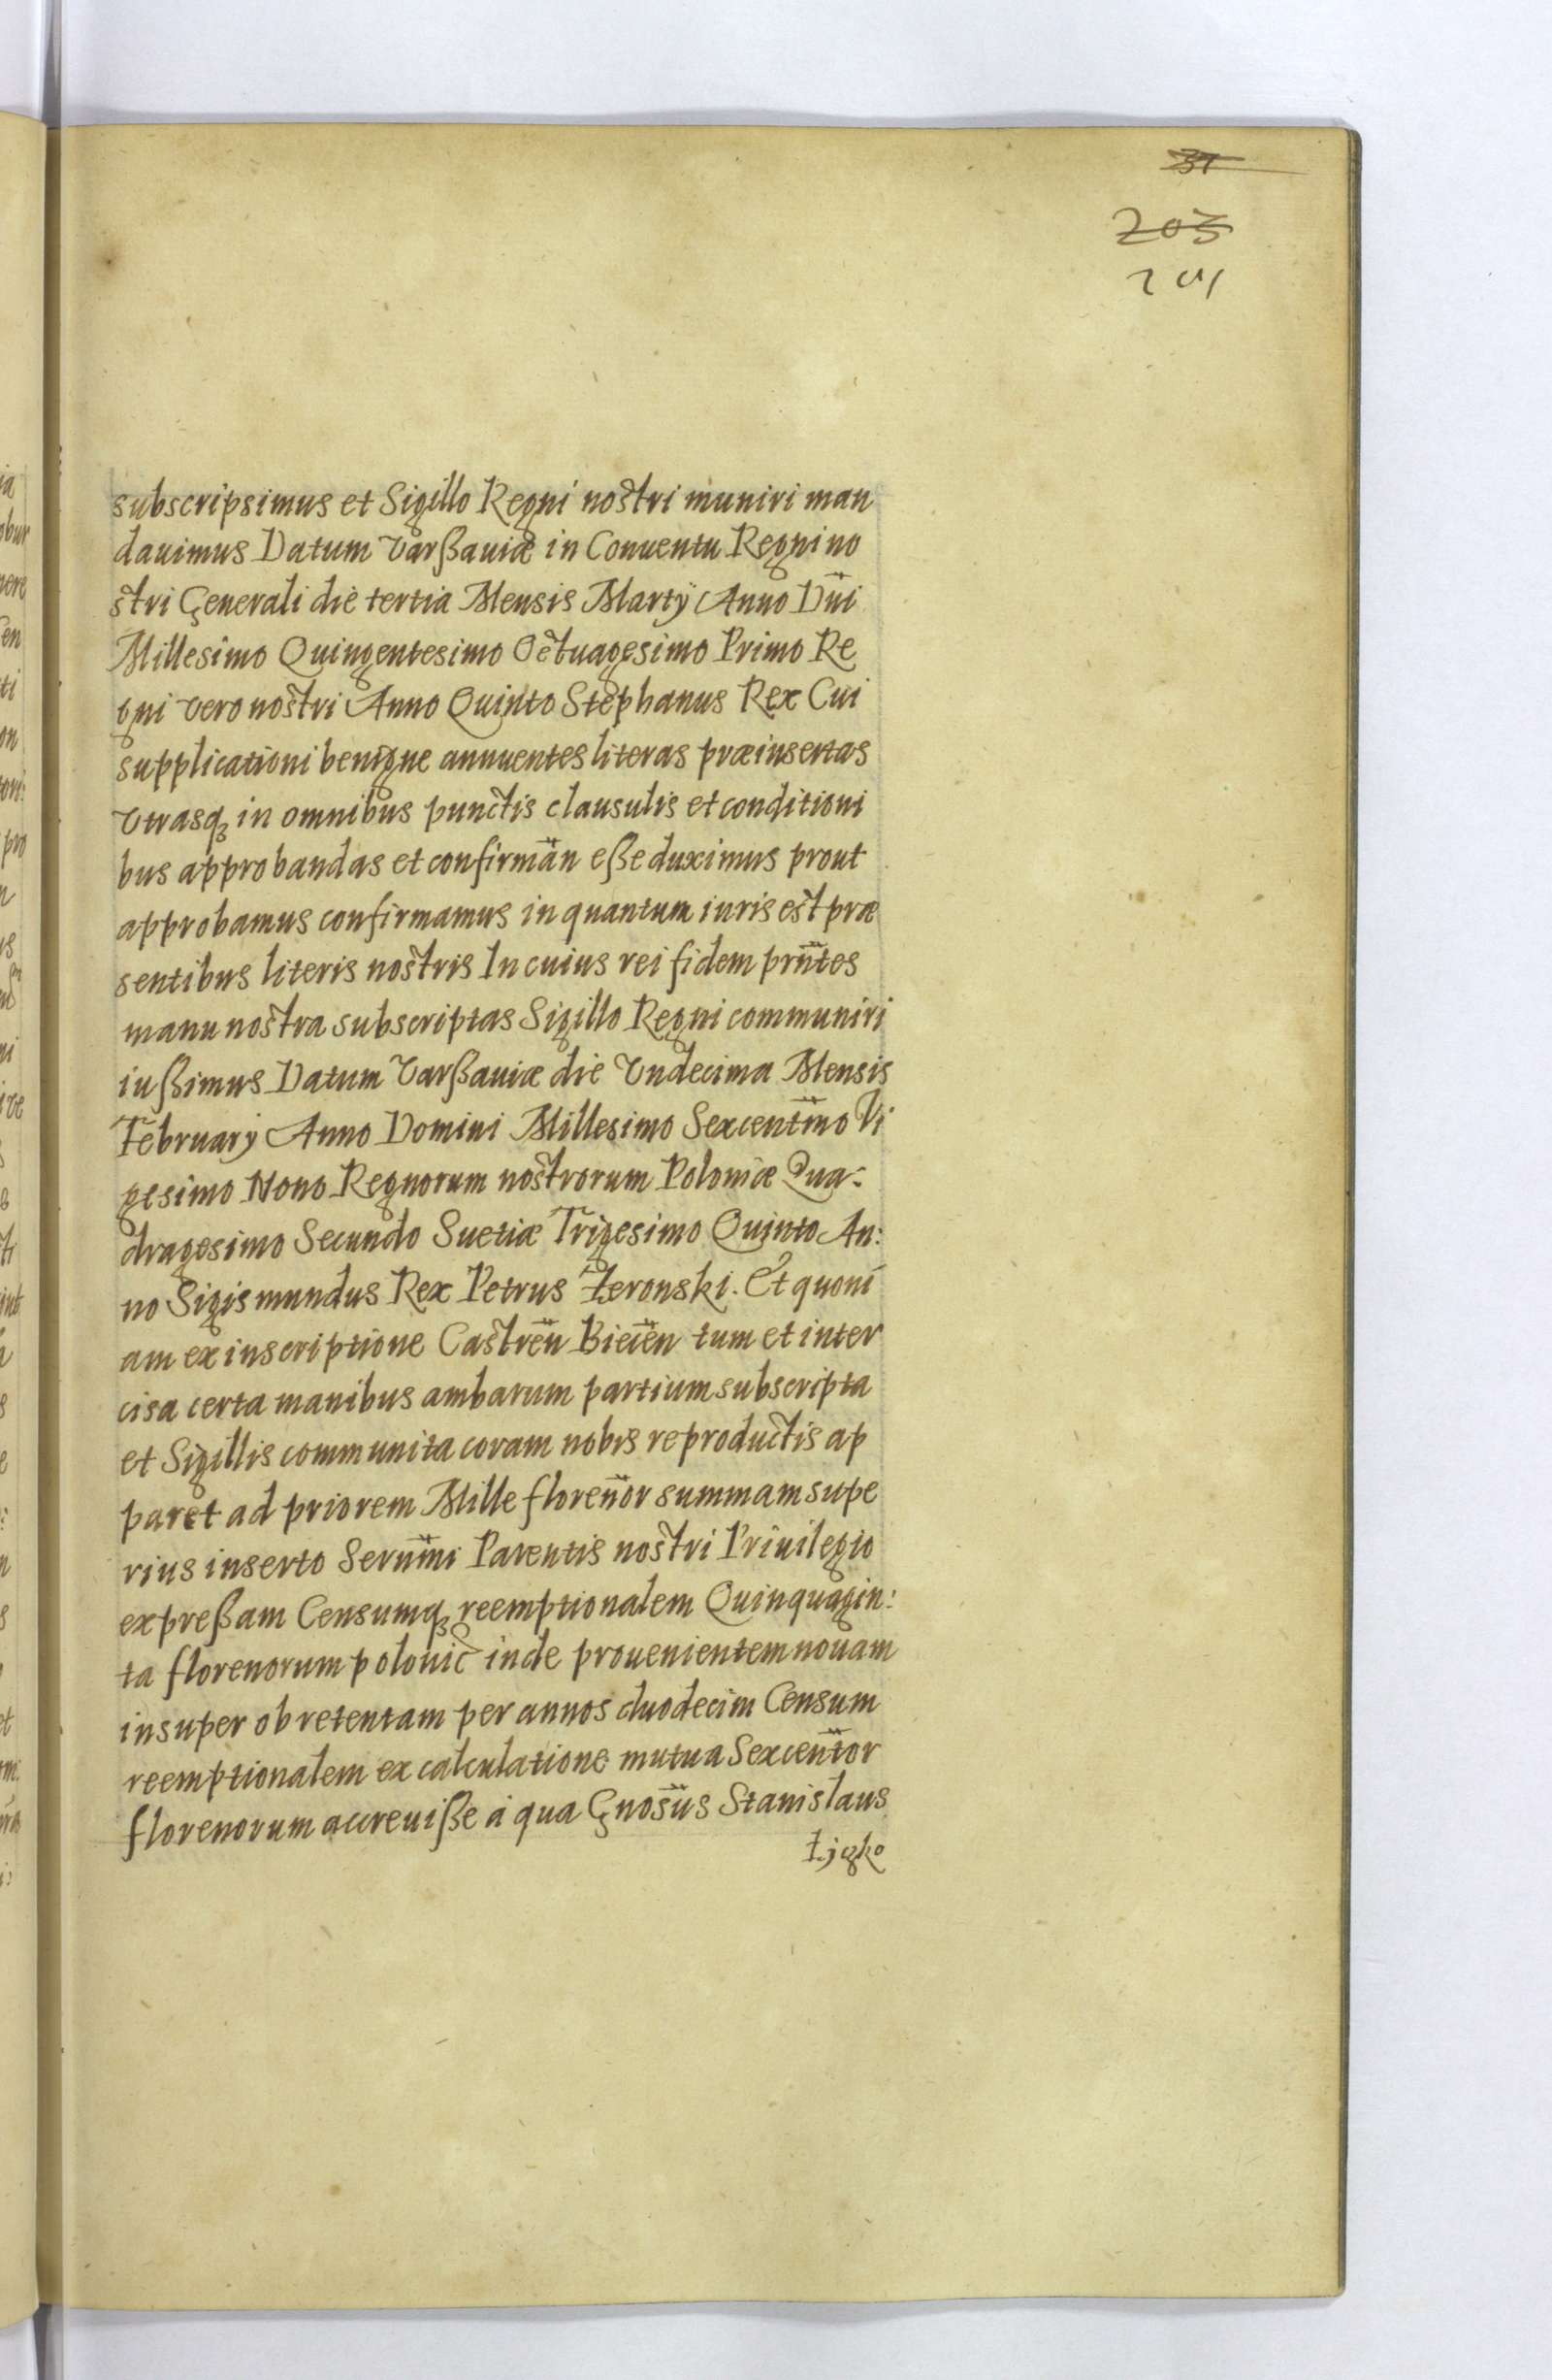 31
203
201
subscripsimus et Sigillo Regni nostri muniri man
dauimus Datum Varßauiæ in Conuentu Regni no
stri Generali die tertia Mensis Martÿ Anno Dni
Millesimo Quingentesimo Octuagesimo Primo Re
gni vero nostri Anno Quinto Stephanus Rex Cui
supplicationi benigne annuentes literas præinsertas
vtrasqꝫ in omnibus punctis clausulis et conditioni
bus approbandas et confirman eße duximus prout
approbamus confirmamus in quantum iuris est præ
sentibus literis nostris In cuius rei fidem prntes
manu nostra subscriptas Sigillo Regni communiri
iußimus Datum Varßauiæ die Vndecima Mensis
Februarÿ Anno Domini Millesimo Sexcentmo Vi
gesimo Nono Regnorum nostrorum Poloniæ Qua:
dragesimo Secundo Suetiæ Trigesimo Quinto An:
no Sigismundus Rex Petrus Żeronski. Et quoni
am ex inscriptione Castren Biecen tum et inter
cisa certa manibus ambarum partium subscripta
et Sigillis communita coram nobis reproductis ap
paret ad priorem Mille florenor summam supe
rius inserto Sernmi Parentis nostri Priuilegio
expreßam Censumqꝫ reemptionalem Quinquagin:
ta florenorum polonic inde prouenientem nouam
insuper ob retentam per annos duodecim Censum
reemptionalem ex calculatione mutua Sexcentor
florenorum accreuiße à qua Gnosus Stanislaus